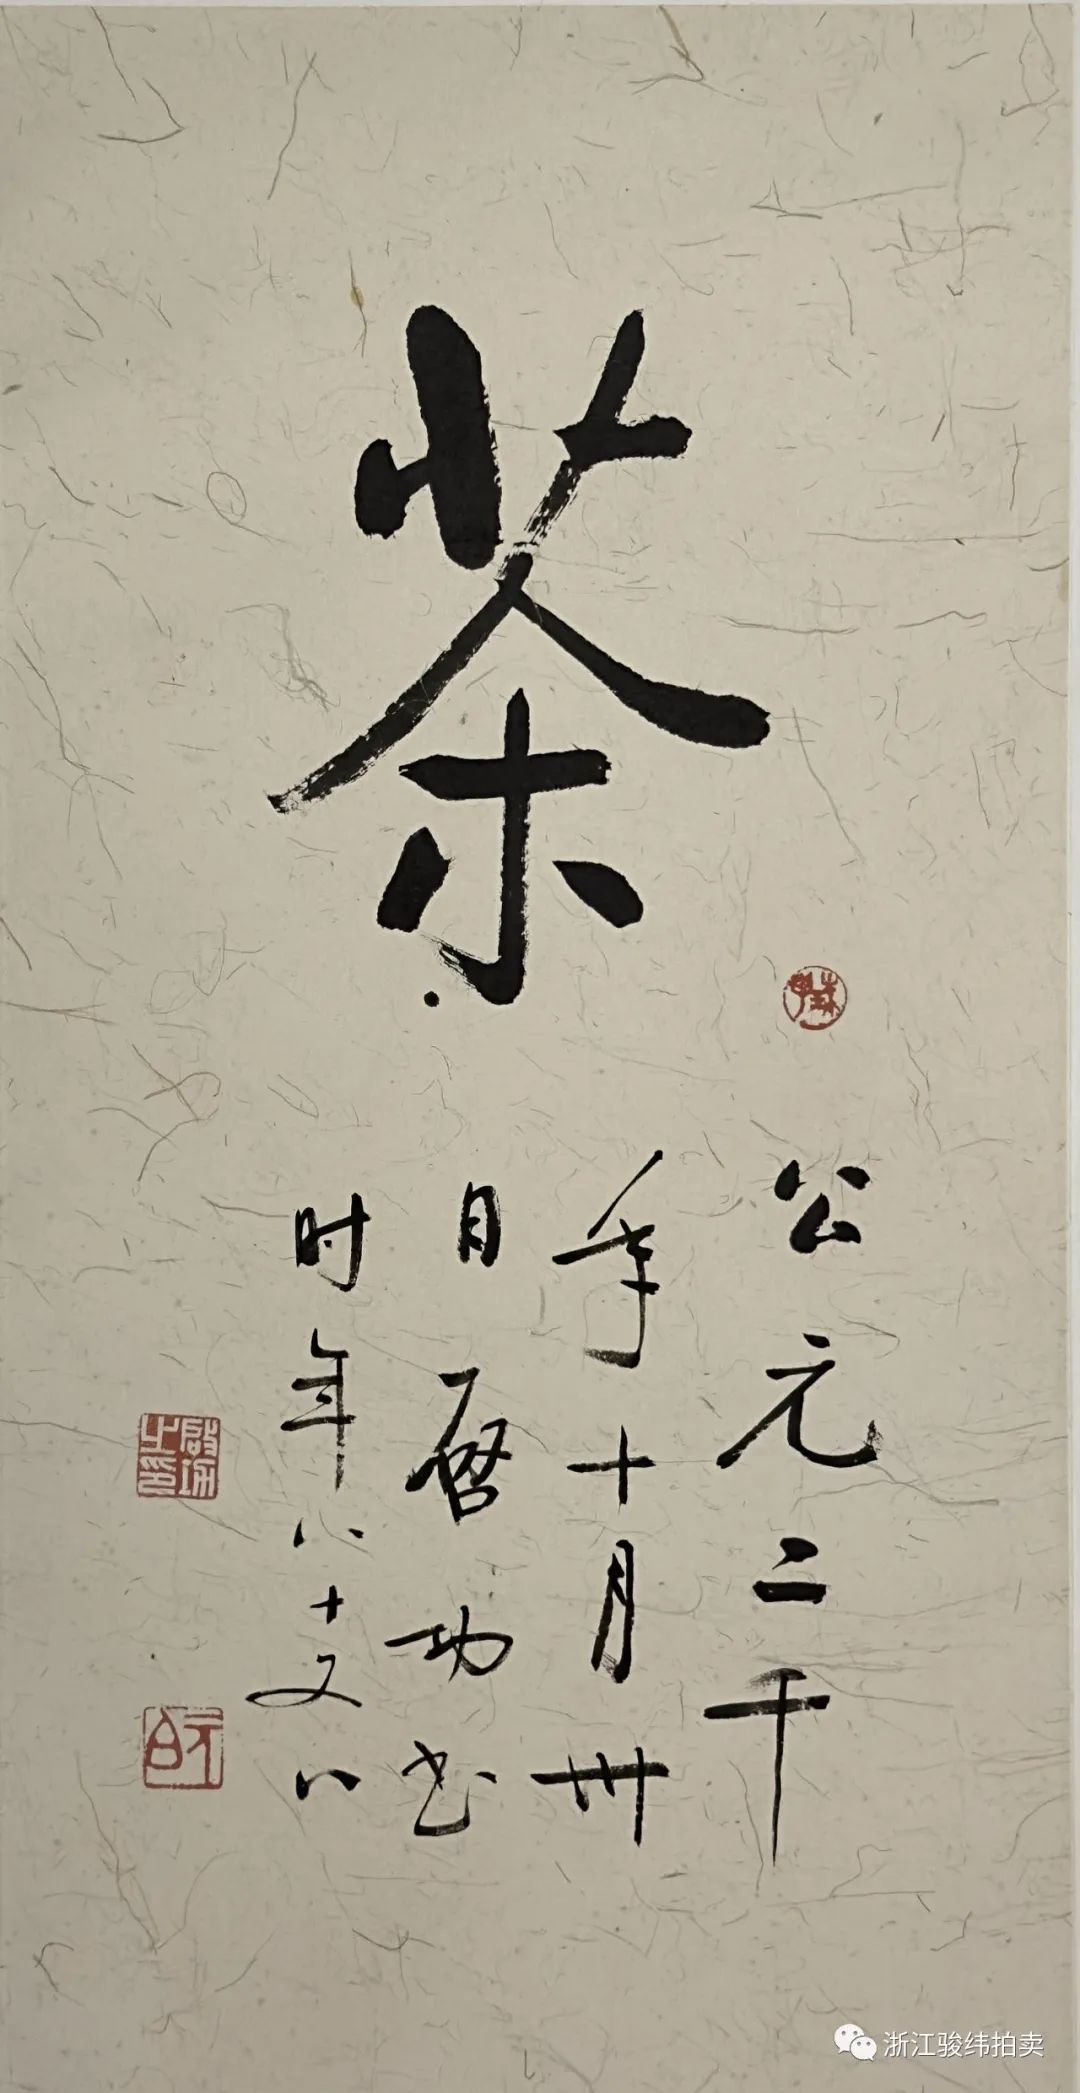 茶
公元二千
年十月卅
日启功书
时年八十又八
启功之印
元白
浙江骏纬拍卖